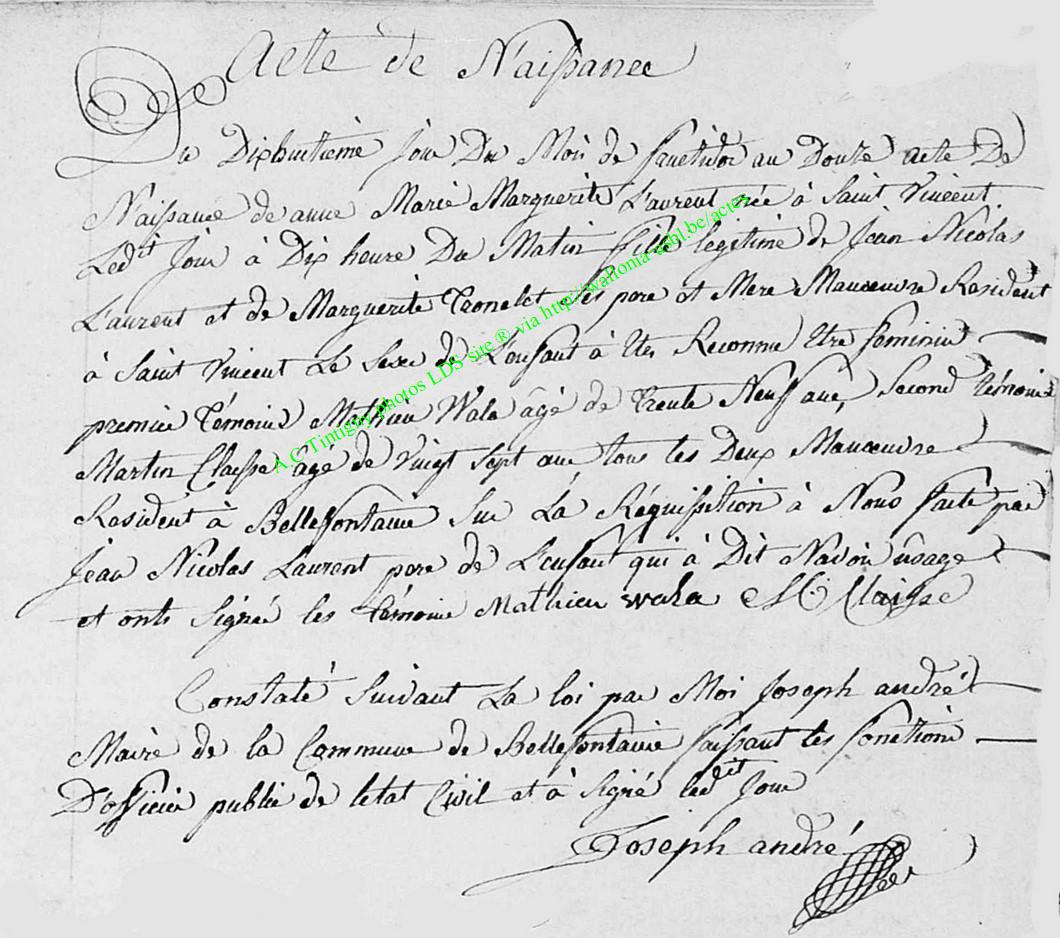 Acte de Naissance
Du Dixhuitieme jour Du Mois de fructidor an Douze acte De
Naissance de anne Marie Marguerite Laurent née à Saint Vincent
Ledit Jour à Dix heure Du Matin fille legitime de Jean Nicolas
Laurent et de Marguerite Tronelet ses pere et Mere Manœuvre Resident
à Saint Vincent Le sexe de L'enfant à êtes Reconnu Etre feminin
premier Témoins Mathieu Wala âgé de Trente Neuf ans, Second témoins
Martin Claisse âgé de vingt sept ans tous les Deux Manœuvre
Resident à Bellefontaine Sur La Réquisition à Nous faite par
Jean Nicolas Laurent pere de L'enfant qui à Dit Navoir usage
et onts Signé les témoins Mathieu wala M Claisse
Constaté Suivant La loi par Moi Joseph andré
Maire de la Commune de Bellefontaine faissant les fonctions
D'officier public de letat Civil et à Signé ledit Jour
Joseph andré
A C Tintigny photos LDS site ® via http://wallonia-asbl.be/actes